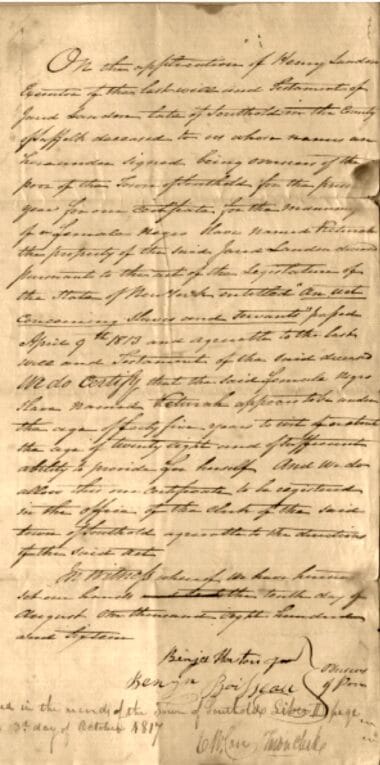 On the application of Henry Landon
Executor of the last will and Testament of
Jared Landon late of Southold in the County
of Suffolk deceased to us whose names are
hereunder signed being overseers of the
poor of the Town of Southold for the present
year for our certificate for the manumi
of a female Negro Slave named
the property of the said Jared Landon deceased
pursuant to the act of the Legislature of
the State of New York entitled "An act
Concerning Slaves and Servants" passed
April 9th 1813 and agreeable to the last
will and Testament of the said deceased
We do Certify that the said female Negro
Slave named appears to be under
the age of forty five years to wit of about
the age of twenty eight and of sufficient
ability to provide for herself And we do
allow this our certificate to be registered
in the office of the clerk of the said
town of Southold agreeable to the directions
of the said act
In Witness whereof we have hereunto
set our hands the tenth day of
August One thousand eight hundred
and Sixteen
Benjn Horton jur
Benjn Boisseau
Overseers
of Poor
in the records of the Town of Southold Liber D page
3d day of October 1817
Town Clerk